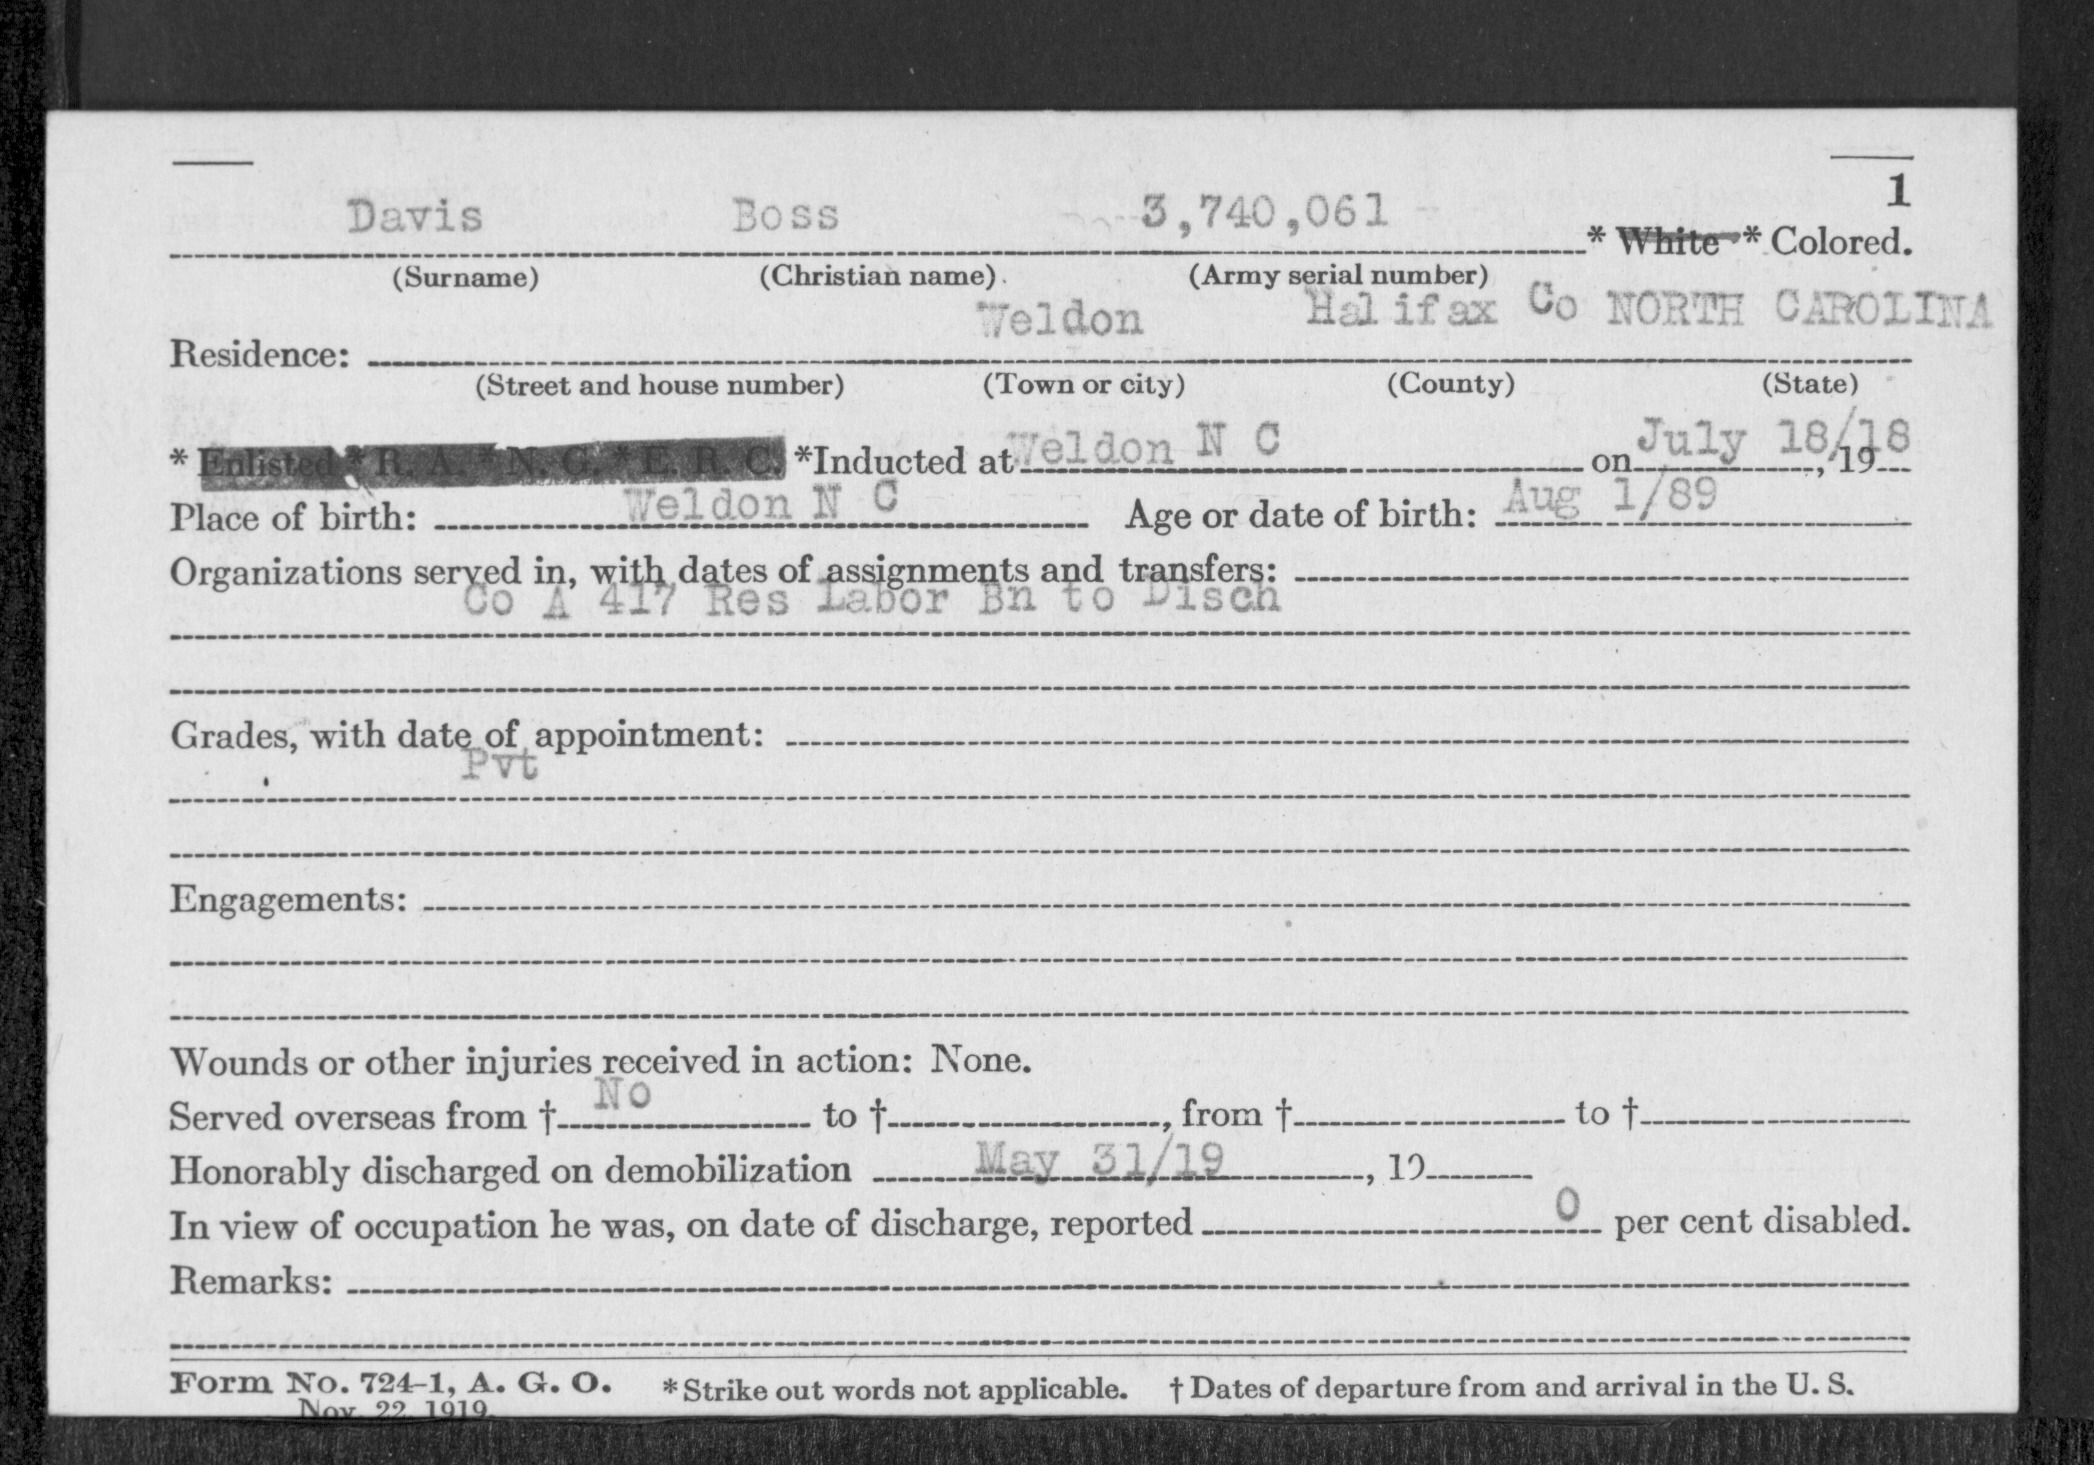 1
Davis Boss 3,740,061 * White * Colored.
(Surname) (Christian name) (Army serial number)
Weldon Halifax Co NORTH CAROLINA
Residence:
(Street and house number) (Town or city) (County) (State)
* Enlisted * R. A. * N. G. * E. R. C. *Inducted at Weldon N C on July 18/18, 19
Place of birth: Weldon N C Age or date of birth: Aug 1/89
Organizations served in, with dates of assignments and transfers:
Co A 417 Res Labor Bn to Disch
Grades, with date of appointment:
Pvt
Engagements:
Wounds or other injuries received in action: None.
Served overseas from † No to †, from † to †
Honorably discharged on demobilization May 31/19, 19
In view of occupation he was, on date of discharge, reported 0 per cent disabled.
Remarks:
Form No. 724-1, A. G. O. *Strike out words not applicable. † Dates of departure from and arrival in the U. S.
Nov. 22, 1919.